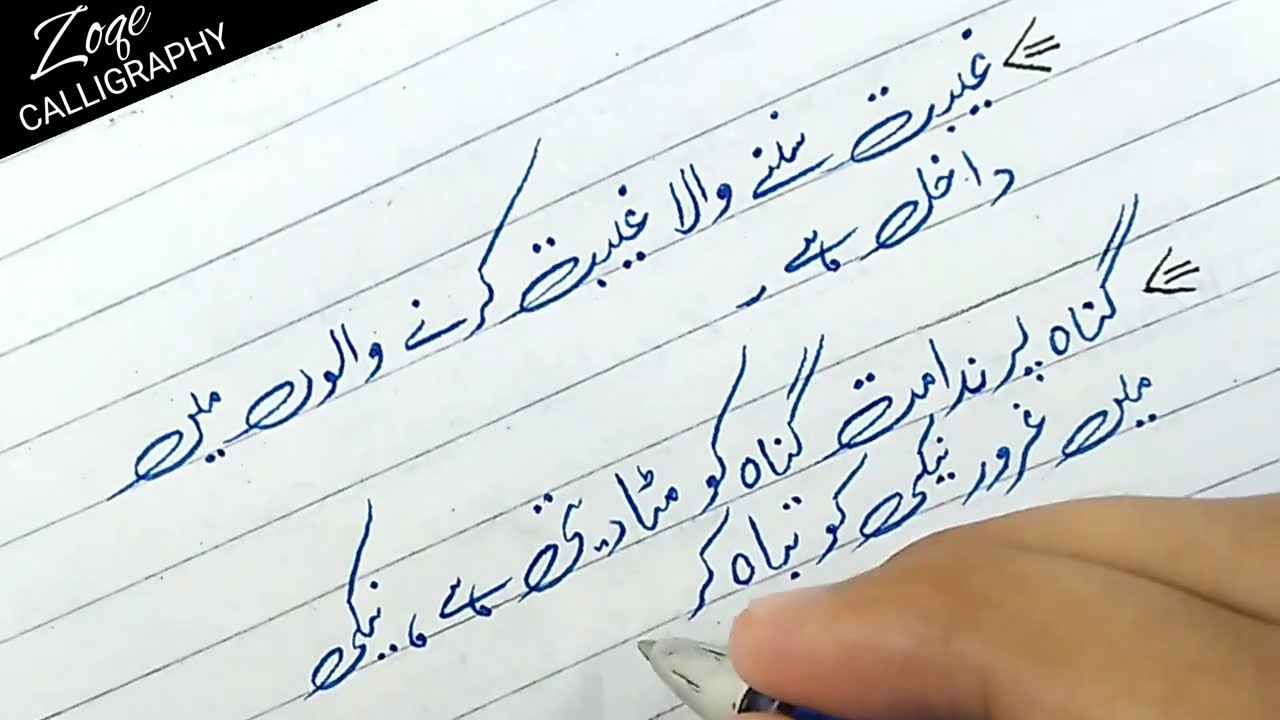 Zoqe
CALLIGRAPHY
غیبت سننے والا غیبت کرنے والوں میں
داخل ہے۔
گناہ پر ندامت گناہ کو مٹا دیتی ہے، نیکی
میں غرور نیکی کو تباہ کر